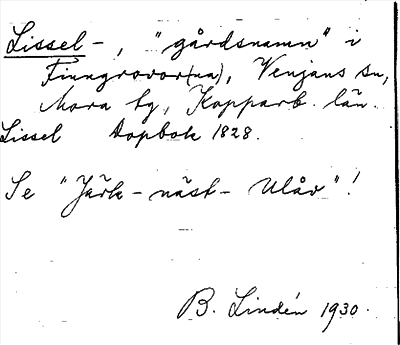 Lissel-, "gårdsnamn" i
Finngrovor(na), Venjans sn,
Mora tg, Kopparb. län.
Lissel Dopbok 1828.
Se "Järk-näst-Ulåv"!
B. Lindén 1930.